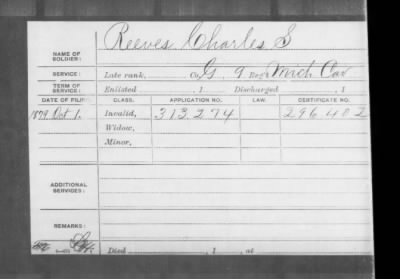 Reeves, Charles S
NAME OF SOLDIER:
SERVICE: Late rank, Co. G, 9 Reg't Mich Cav
TERM OF SERVICE: Enlisted , 1 Discharged , 1
DATE OF FILING. CLASS. APPLICATION NO. LAW. CERTIFICATE NO.
1879 Oct 1. Invalid, 313.274 296.402
Widow,
Minor,
ADDITIONAL SERVICES:
REMARKS:
Died , 1 , at